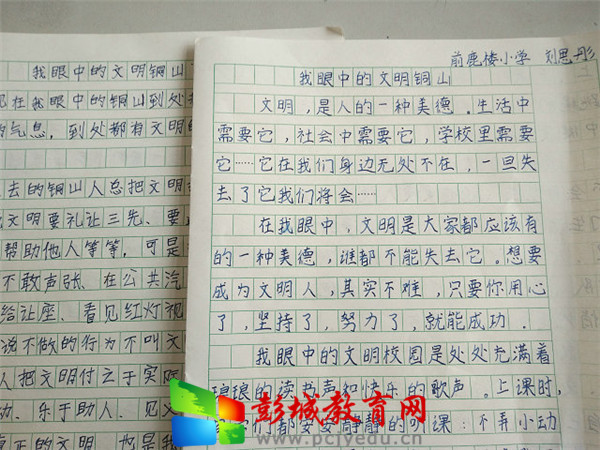 我眼中的文明铜山
在我眼中的铜山到处
气息，到处都有文明的
去的铜山人总把文明
文明要礼让三先、要
帮助他人等等，可是
不敢声张、在公共汽
给让座、看见红灯视
说不做的行为不叫文
人把文明付之于实际
动、乐于助人、见义
真正的文明，也是我
前鹿楼小学 刘思彤
我眼中的文明铜山
文明，是人的一种美德。生活中
需要它，社会中需要它，学校里需要
它……它在我们身边无处不在，一旦失
去了它我们将会……
在我眼中，文明是大家都应该有
的一种美德，谁都不能失去它。想要
成为文明人，其实不难，只要你用心
了，坚持了，努力了，就能成功．
我眼中的文明校园是处处充满着
琅琅的读书声和快乐的歌声。上课时，
们都安安静静的听课：不弄小动
彭城教育网
www.pcjyedu.cn